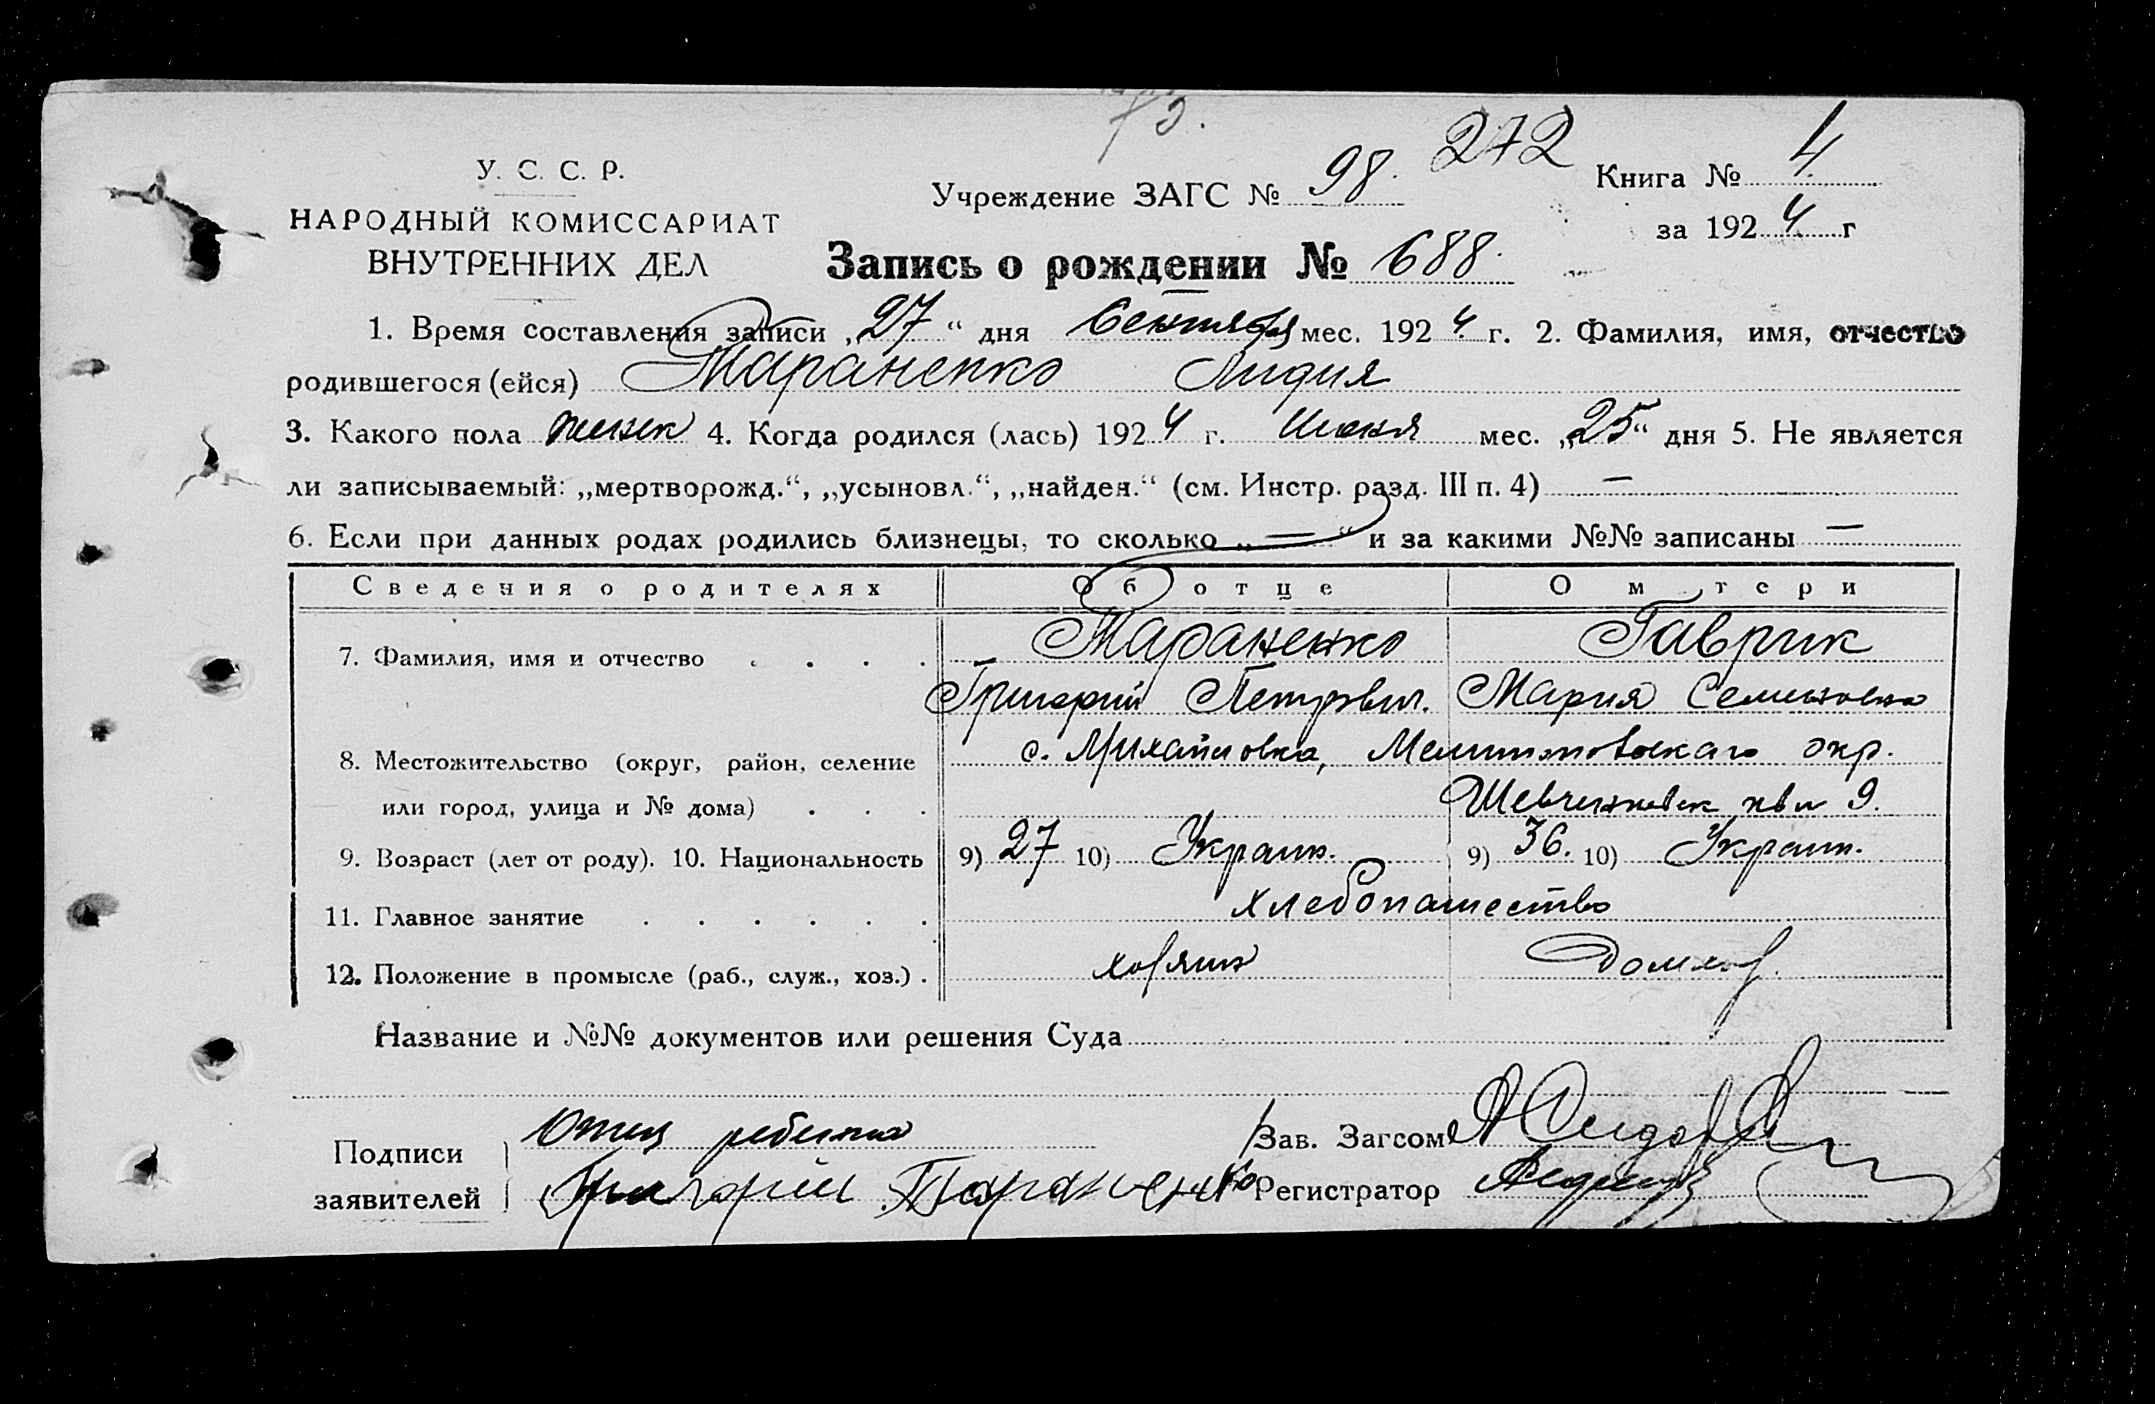 73.
272
У. С. С. Р.
НАРОДНЫЙ КОМИССАРИАТ
ВНУТРЕННИХ ДЕЛ
Учреждение ЗАГС № 98.
Книга № 4
за 1924 г
Запись о рождении № 688.
1. Время составления записи „27“ дня Сентября мес. 1924 г. 2. Фамилия, имя, отчество
родившегося (ейся) Тараненко Лидия
3. Какого пола женск 4. Когда родился (лась) 1924 г. Июня мес. „25“ дня 5. Не является
ли записываемый: „мертворожд.“, „усыновл.“, „найден.“ (см. Инстр. разд. III п. 4) —
6. Если при данных родах родились близнецы, то сколько „—“ и за какими №№ записаны —
Сведения о родителях Об отце О м тери
7. Фамилия, имя и отчество . . . . Тараненко Гаврик
Григорий Петрович. Мария Семеновна
8. Местожительство (округ, район, селение с. Михайловка, Мелитопольскаго окр.
или город, улица и № дома) . . . Шевченковск 9.
9. Возраст (лет от роду). 10. Национальность 9) 27 10) Украин. 9) 36. 10) Украин.
11. Главное занятие . . . . . . хлебопашество
12. Положение в промысле (раб., служ., хоз.) . хозяин Домхоз.
Название и №№ документов или решения Суда
Подписи
заявителей
Отец ребенка
Григорий Тараненко
Зав. Загсом
Регистратор